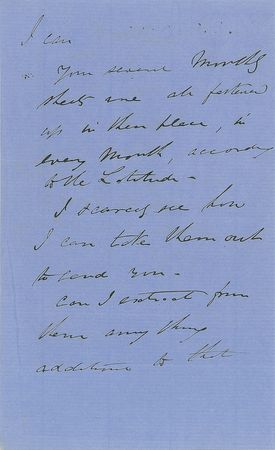 I can
Your several Months
sheets are all fastened
up in their place, in
every Month, according
to the Latitude -
I scarcely see how
I can take them out
to send you -
Can I extract from
them any thing
additional to that